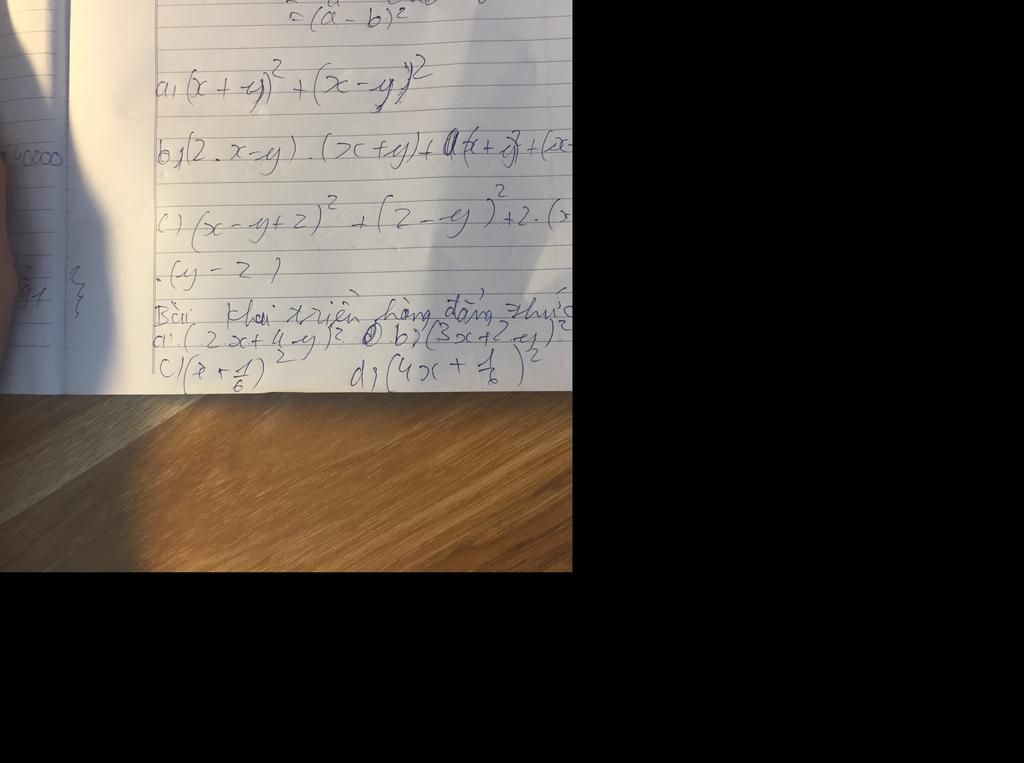 = (a - b)²
a, (x + y)² + (x - y)²
40000
b, (2. x-y) . (x+y) + (x + y)² + (x-
c) (x - y + z)² + (z - y)² + 2. (x
. (y - z)
Bài Khai triển hằng đẳng thức
a. (2x + 4y)² b, (3x + 2y)²
c) (x + 1/6)² d, (4x + 1/6)²